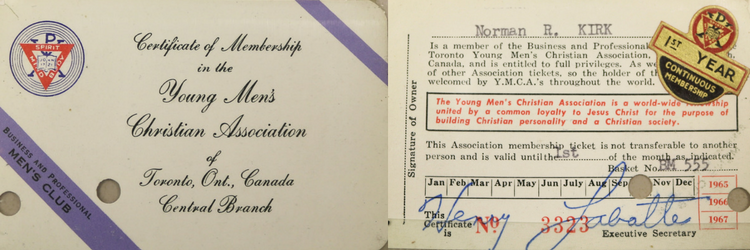 SPIRIT
MIND
BODY
Certificate of Membership
in the
Young Men's
Christian Association
of
Toronto, Ont., Canada
Central Branch
BUSINESS AND PROFESSIONAL
MEN'S CLUB
Signature of Owner
Norman R. KIRK
Is a member of the Business and Professional
Toronto Young Men's Christian Association,
Canada, and is entitled to full privileges. As we
of other Association tickets, so the holder of th
welcomed by Y.M.C.A.'s throughout the world.
1ST YEAR
CONTINUOUS
MEMBERSHIP
The Young Men's Christian Association is a world-wide fellowship
united by a common loyalty to Jesus Christ for the purpose of
building Christian personality and a Christian society.
This Association membership ticket is not transferable to another
person and is valid until the 1st of the month as indicated.
Basket No. BM 555
Jan Feb Mar Apr May Jun July Aug Sep Nov Dec 1965
1966
1967
This
Certificate
is No 3323
Henry Labatte
Executive Secretary